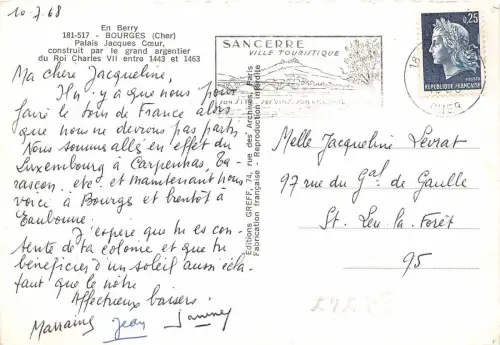 10.7.68
En Berry
181-517 - BOURGES (Cher)
Palais Jacques Cœur,
construit par le grand argentier
du Roi Charles VII entre 1443 et 1463
Ma chère Jacqueline,
Il n'y a que nous pour
faire le tour de France alors
que nous ne devrons pas partir
Nous sommes allés en effet du
Luxembourg à Carpentras, Ta-
rascon, etc et maintenant nous
voici à Bourges et bientôt à
Eaubonne.
J'espère que tu es con-
tente de ta colonie et que tu
bénéficies d'un soleil aussi écla-
tant que le nôtre
Affectueux baisers.
Marraine Jean
Editions GREFF, 74, rue des Archives, Paris
Fabrication française - Reproduction interdite
SANCERRE
VILLE TOURISTIQUE
SON SITE SES VINS
18
CHER
0,25
REPUBLIQUE FRANÇAISE
Melle Jacqueline Levrat
97 rue du Gal de Gaulle
St. Leu la Forêt
95